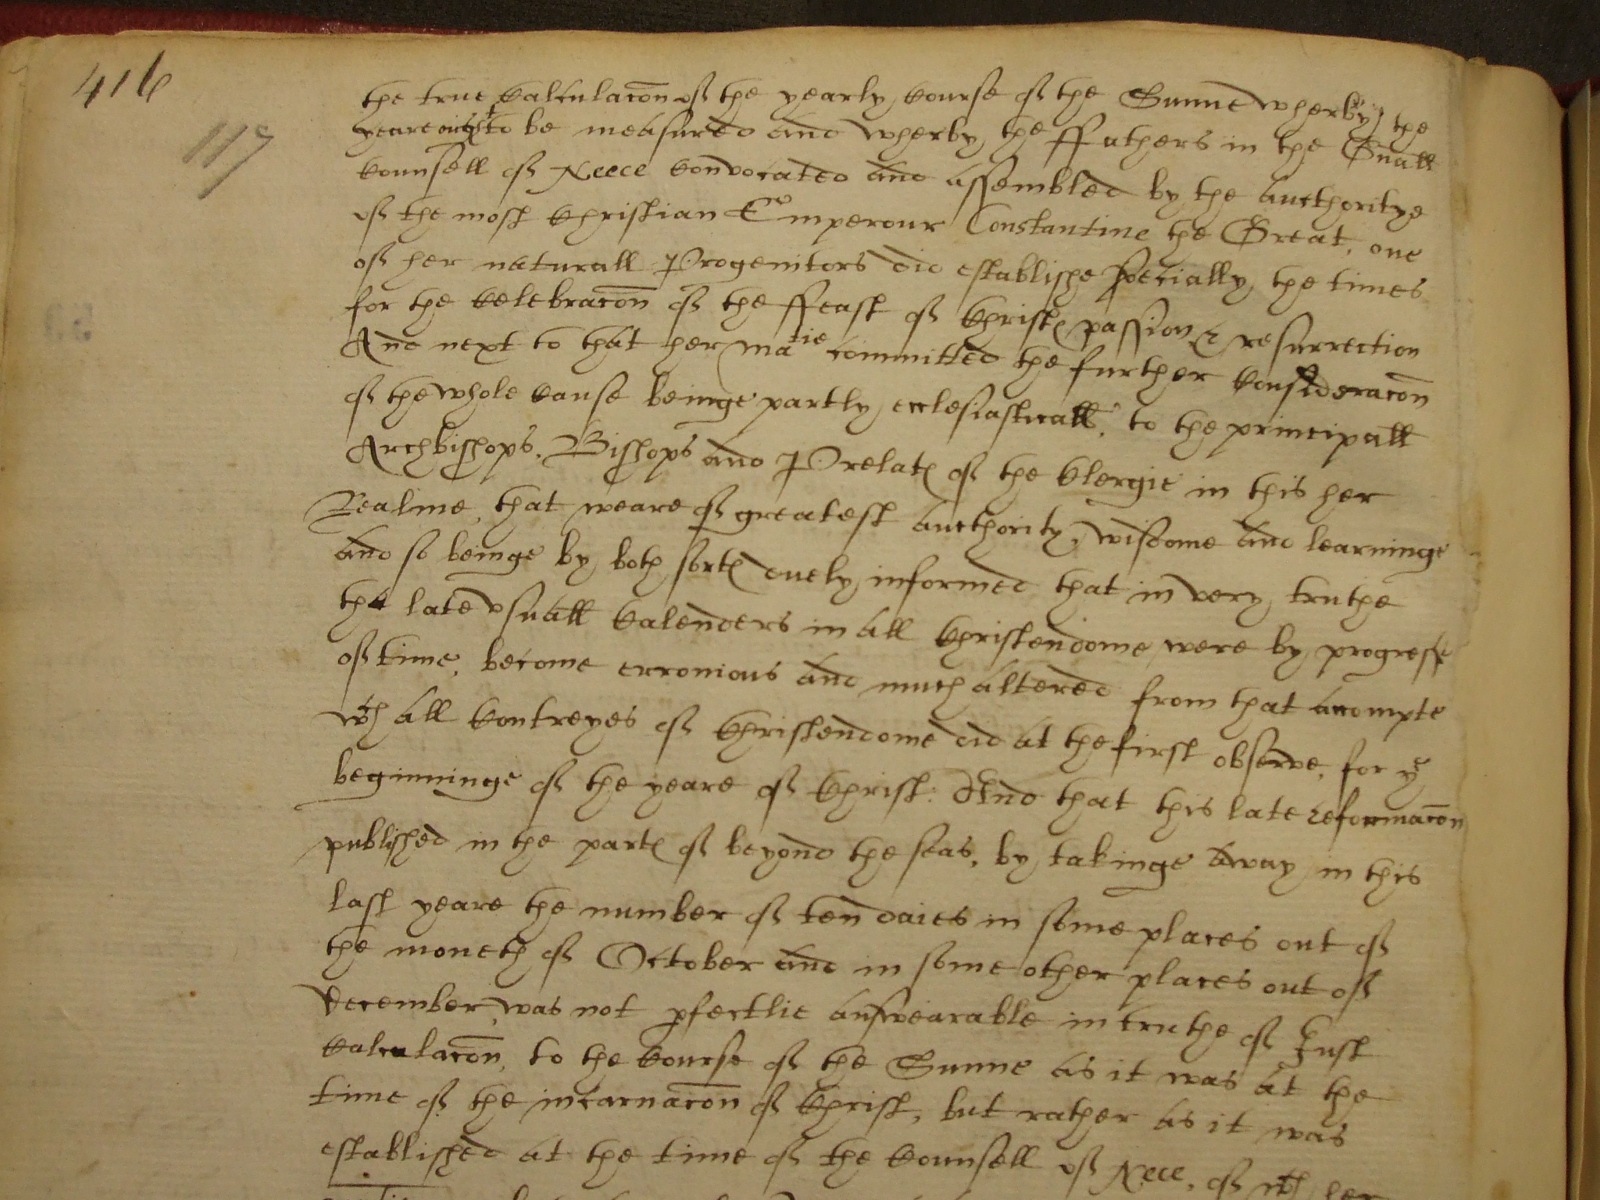 416
117
the true Calculacon of the yearly Course of the Sunne wherby the
yeare ought to be measured and wherby the ffathers in the Gnall
Counsell of Neece Convocated and assembled by the aucthoritye
of the most Christian Emperour Constantine the Great, one
of her naturall Progenitors did establishe specially the times
for the Celebracon of the ffeast of Christes passion & resurrection
And next to that her Matie committed the further Consideracon
of the whole Cause beinge partly ecclesiasticall, to the principall
Archbishops, Bishops and Prelates of the Clergie in this her
Realme, that weare of greatest aucthority, wisdome and learninge
and so beinge by both sortes duely informed that in very truthe
the late usuall Calenders in all Christendome were by progresse
of time, become erronious and much altered from that accompte
wch all Contreyes of Christendome did at the first observe, for ye
beginninge of the yeare of Christ: And that this late reformacon
published in the partes of beyond the seas, by takinge away in this
last yeare the number of ten daies in some places out of
the moneth of October and in some other places out of
December, was not pfectlie answearable in truthe of Just
Calculacon, to the Course of the Sunne as it was at the
time of the incarnacon of Christ, but rather as it was
established at the time of the Counsell of Nece, of wch her